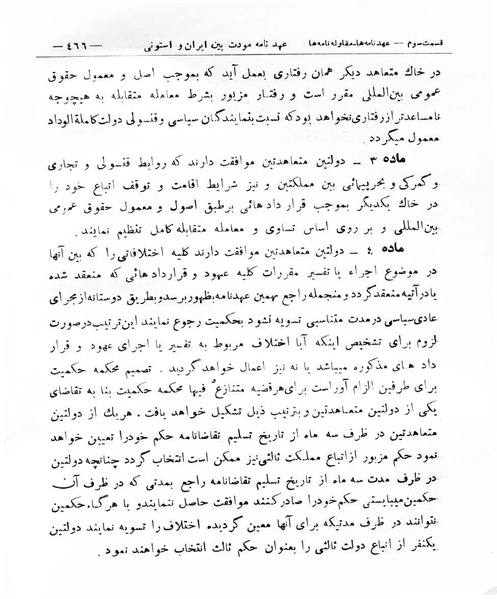 قسمت سوم — عهدنامه‌ها، مقاوله‌نامه‌ها عهد نامه مودت بین ایران و استونی —٤٦٦—
در خاك متعاهد دیگر همان رفتاری بعمل آید که بموجب اصل و معمول حقوق
عمومی بین‌المللی مقرر است و رفتار مزبور بشرط معامله متقابله به هیچوجه
نامساعدتر از رفتاری نخواهد بود که نسبت بنمایندگان سیاسی و قنسولی دولت کاملة‌الوداد
معمول میگردد .
ماده ۳ ــ دولتین متعاهدتین موافقت دارند که روابط قنسولی و تجاری
و گمرکی و بحرپیمائی بین مملکتین و نیز شرایط اقامت و توقف اتباع خود را
در خاك یکدیگر بموجب قرار داد هائی برطبق اصول و معمول حقوق عمومی
بین‌المللی و بر روی اساس تساوی و معامله متقابله کامل تنظیم نمایند .
ماده ٤ ــ دولتین متعاهدتین موافقت دارند کلیه اختلافاتی را که بین آنها
در موضوع اجراء یا تفسیر مقررات کلیه عهود و قراردادهائی که منعقد شده
یا در آتیه منعقد گردد و منجمله راجع بهمین عهدنامه بظهور برسد و بطریق دوستانه از مجرای
عادی سیاسی در مدت متناسبی تسویه نشود بحکمیت رجوع نمایند این ترتیب در صورت
لزوم برای تشخیص اینکه آیا اختلاف مربوط به تفسیر یا اجرای عهود و قرار
داد های مذکوره میباشد یا نه نیز اعمال خواهد گردید . تصمیم محکمه حکمیت
برای طرفین الزام آور است برای هر قضیه متنازع فیها محکمه حکمیت بنا به تقاضای
یکی از دولتین متعاهدتین و بترتیب ذیل تشکیل خواهد یافت . هریك از دولتین
متعاهدتین در ظرف سه ماه از تاریخ تسلیم تقاضانامه حکم خود را تعیین خواهد
نمود حکم مزبور از اتباع مملکت ثالثی نیز ممکن است انتخاب گردد چنانچه دولتین
در ظرف مدت سه ماه از تاریخ تسلیم تقاضانامه راجع بمدتی که در ظرف آن
حکمین میبایستی حکم خود را صادر کنند موافقت حاصل ننمایند و یا هرگاه حکمین
نتوانند در ظرف مدتیکه برای آنها معین گردیده اختلاف را تسویه نمایند دولتین
یکنفر از اتباع دولت ثالثی را بعنوان حکم ثالث انتخاب خواهند نمود .